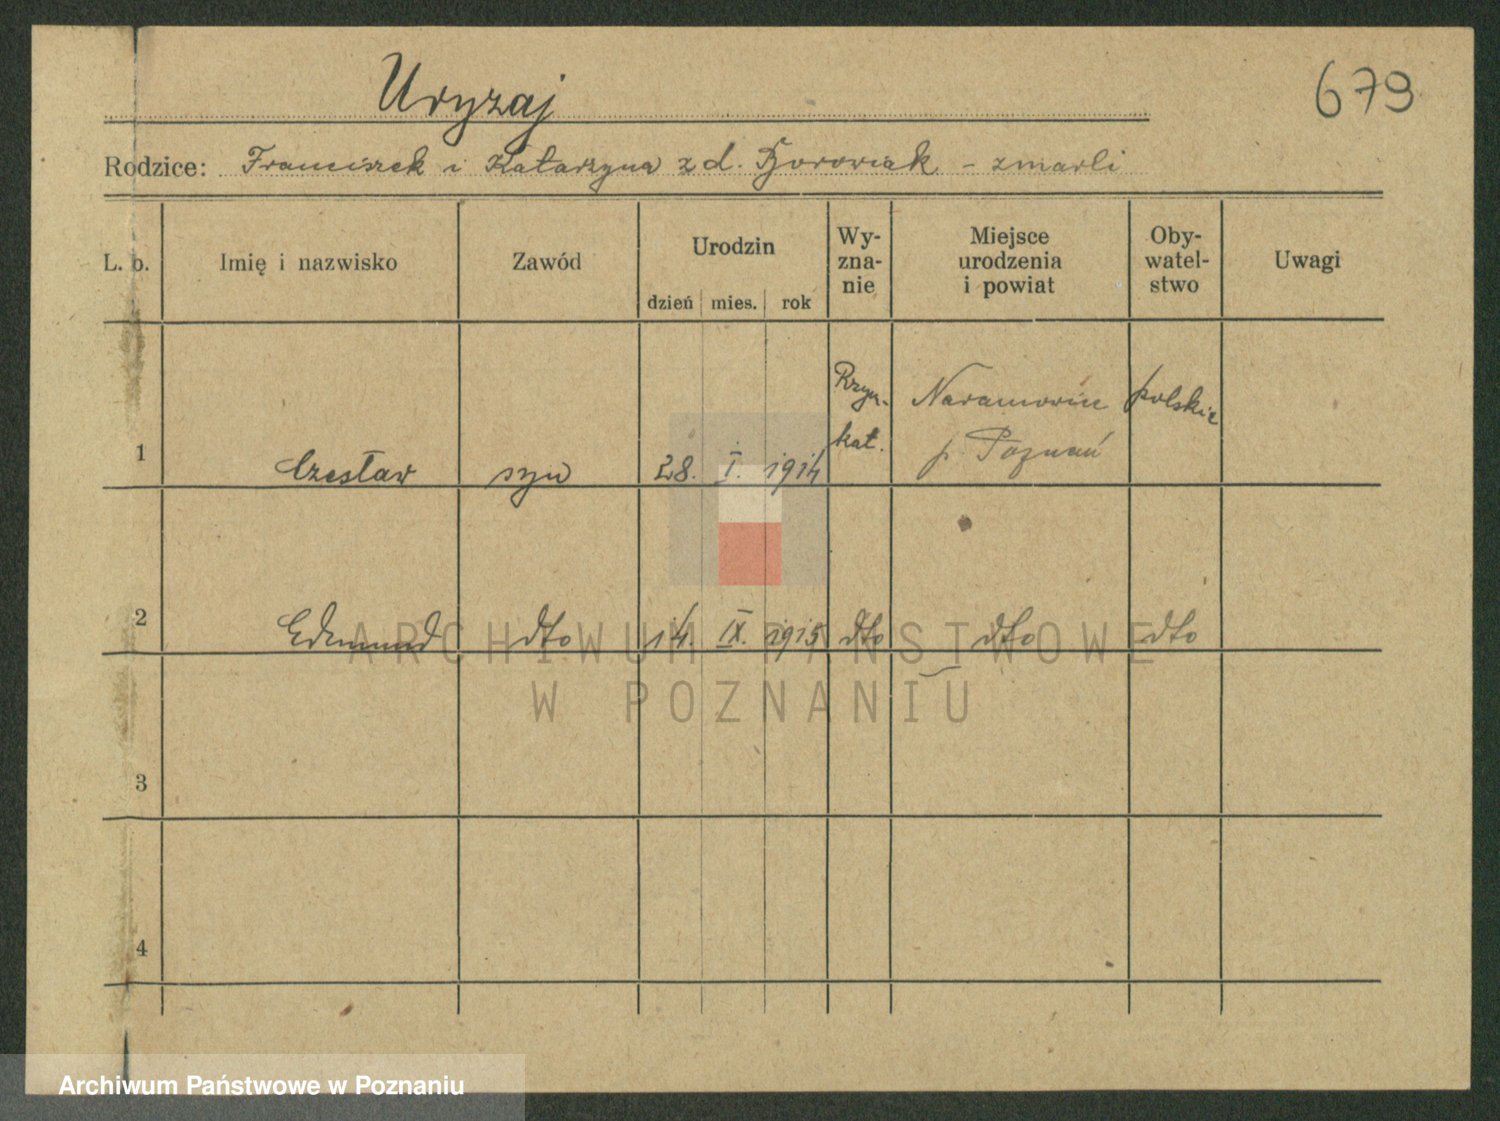 Uryzaj
679
Rodzice: Franciszek i Katarzyna z d. Borowiak - zmarli
L. b. Imię i nazwisko Zawód Urodzin dzień mies. rok Wy-zna-nie Miejsce urodzenia i powiat Oby-watel-stwo Uwagi
1 Czesław syn 28. I. 1914 Rzym.-kat. Naramowice p. Poznań polskie
2 Edmund dto 14. IX. 1915 dto dto dto
3
4
ARCHIWUM PAŃSTWOWE
W POZNANIU
Archiwum Państwowe w Poznaniu